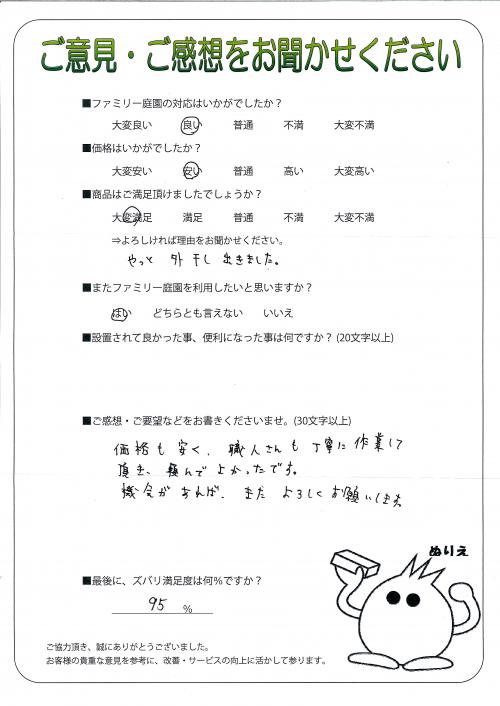 ご意見・ご感想をお聞かせください
■ファミリー庭園の対応はいかがでしたか？
大変良い 良い 普通 不満 大変不満
■価格はいかがでしたか？
大変安い 安い 普通 高い 大変高い
■商品はご満足頂けましたでしょうか？
大変満足 満足 普通 不満 大変不満
⇒よろしければ理由をお聞かせください。
やっと 外干し 出きました。
■またファミリー庭園を利用したいと思いますか？
はい どちらとも言えない いいえ
■設置されて良かった事、便利になった事は何ですか？(20文字以上)
■ご感想・ご要望などをお書きくださいませ。(30文字以上)
価格も 安く、職人さんも 丁寧に 作業して
頂き、頼んで よかったです。
機会が あれば、また よろしく お願いします
ぬりえ
■最後に、ズバリ満足度は何％ですか？
95 ％
ご協力頂き、誠にありがとうございました。
お客様の貴重な意見を参考に、改善・サービスの向上に活かして参ります。